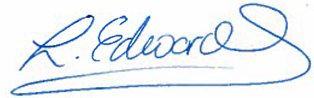 R. Edwards